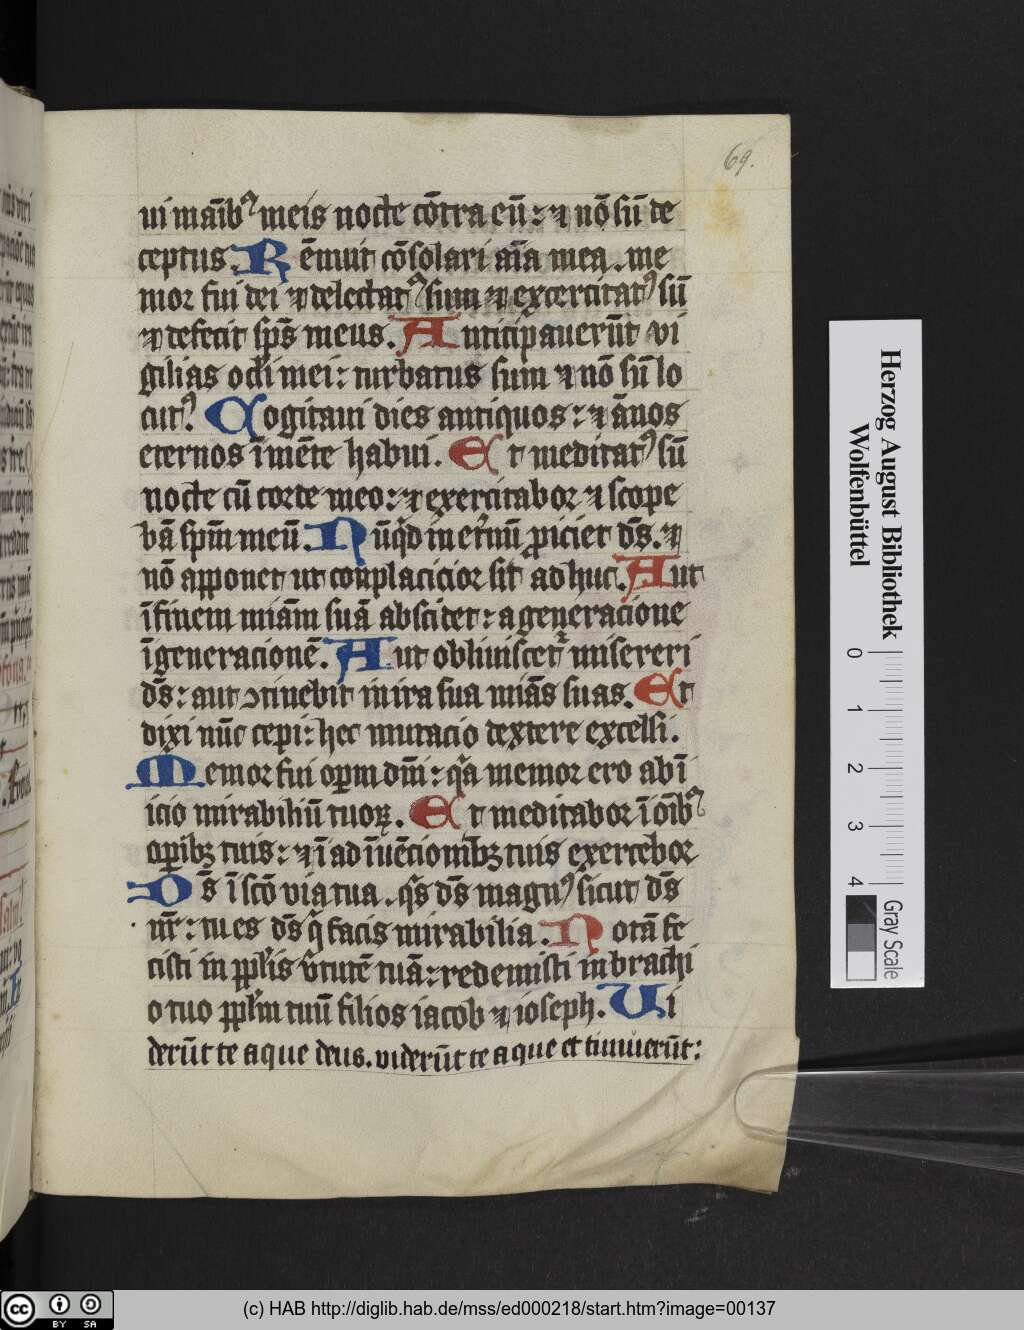 69.
ui maībꝰ meis nocte cōtra eū: ⁊ nō sū de
ceptus. Rēnuit cōsolari aīa mea. me
mor fui dei ⁊ delectatꝰ sum ⁊ exercitatꝰ sū
⁊ defecit sp̄s meus. Anticipauerūt vi
gilias oc̄li mei: turbatus sum ⁊ nō sū lo
cutꝰ. Cogitaui dies antiquos: ⁊ ānos
eternos ī mēte habui. Et meditatꝰ sū
nocte cū corde meo: ⁊ exercitabor ⁊ scope
bā sp̄m meū. Nūq̄d in et̄nū ꝓiciet dē̄s. ⁊
nō apponet ut conplacicior sit adhuc. Aut
ī finem mīam suā abscidet: a generacione
ī generacionē. Aut obliuiscet᷑ misereri
dē̄s: aut ↄtinebit in ira sua mīas suas. Et
dixi nūc cepi: hec mutacio dextere excelsi.
Memor fui oꝑm dn̄i: q̄a memor ero ab ī
icio mirabiliū tuoꝝ. Et meditabor ī oībꝰ
oꝑibꝫ tuis: ⁊ ī adīuēcionibꝫ tuis exercebor
Ds̄ ī scō via tua. q̄s ds̄ magnꝰ sicut ds̄
nr̄: tu es ds̄ q̄ facis mirabilia. Notā fe
cisti in ppl̄is v̄tutē tuā: redemisti in brachi
o tuo ppl̄m tuū filios iacob ⁊ ioseph. Ui
derūt te aque deus. viderūt te aque et timuerūt:
Herzog August Bibliothek
Wolfenbüttel
0 1 2 3 4
Gray Scale
cc BY SA
(c) HAB http://diglib.hab.de/mss/ed000218/start.htm?image=00137